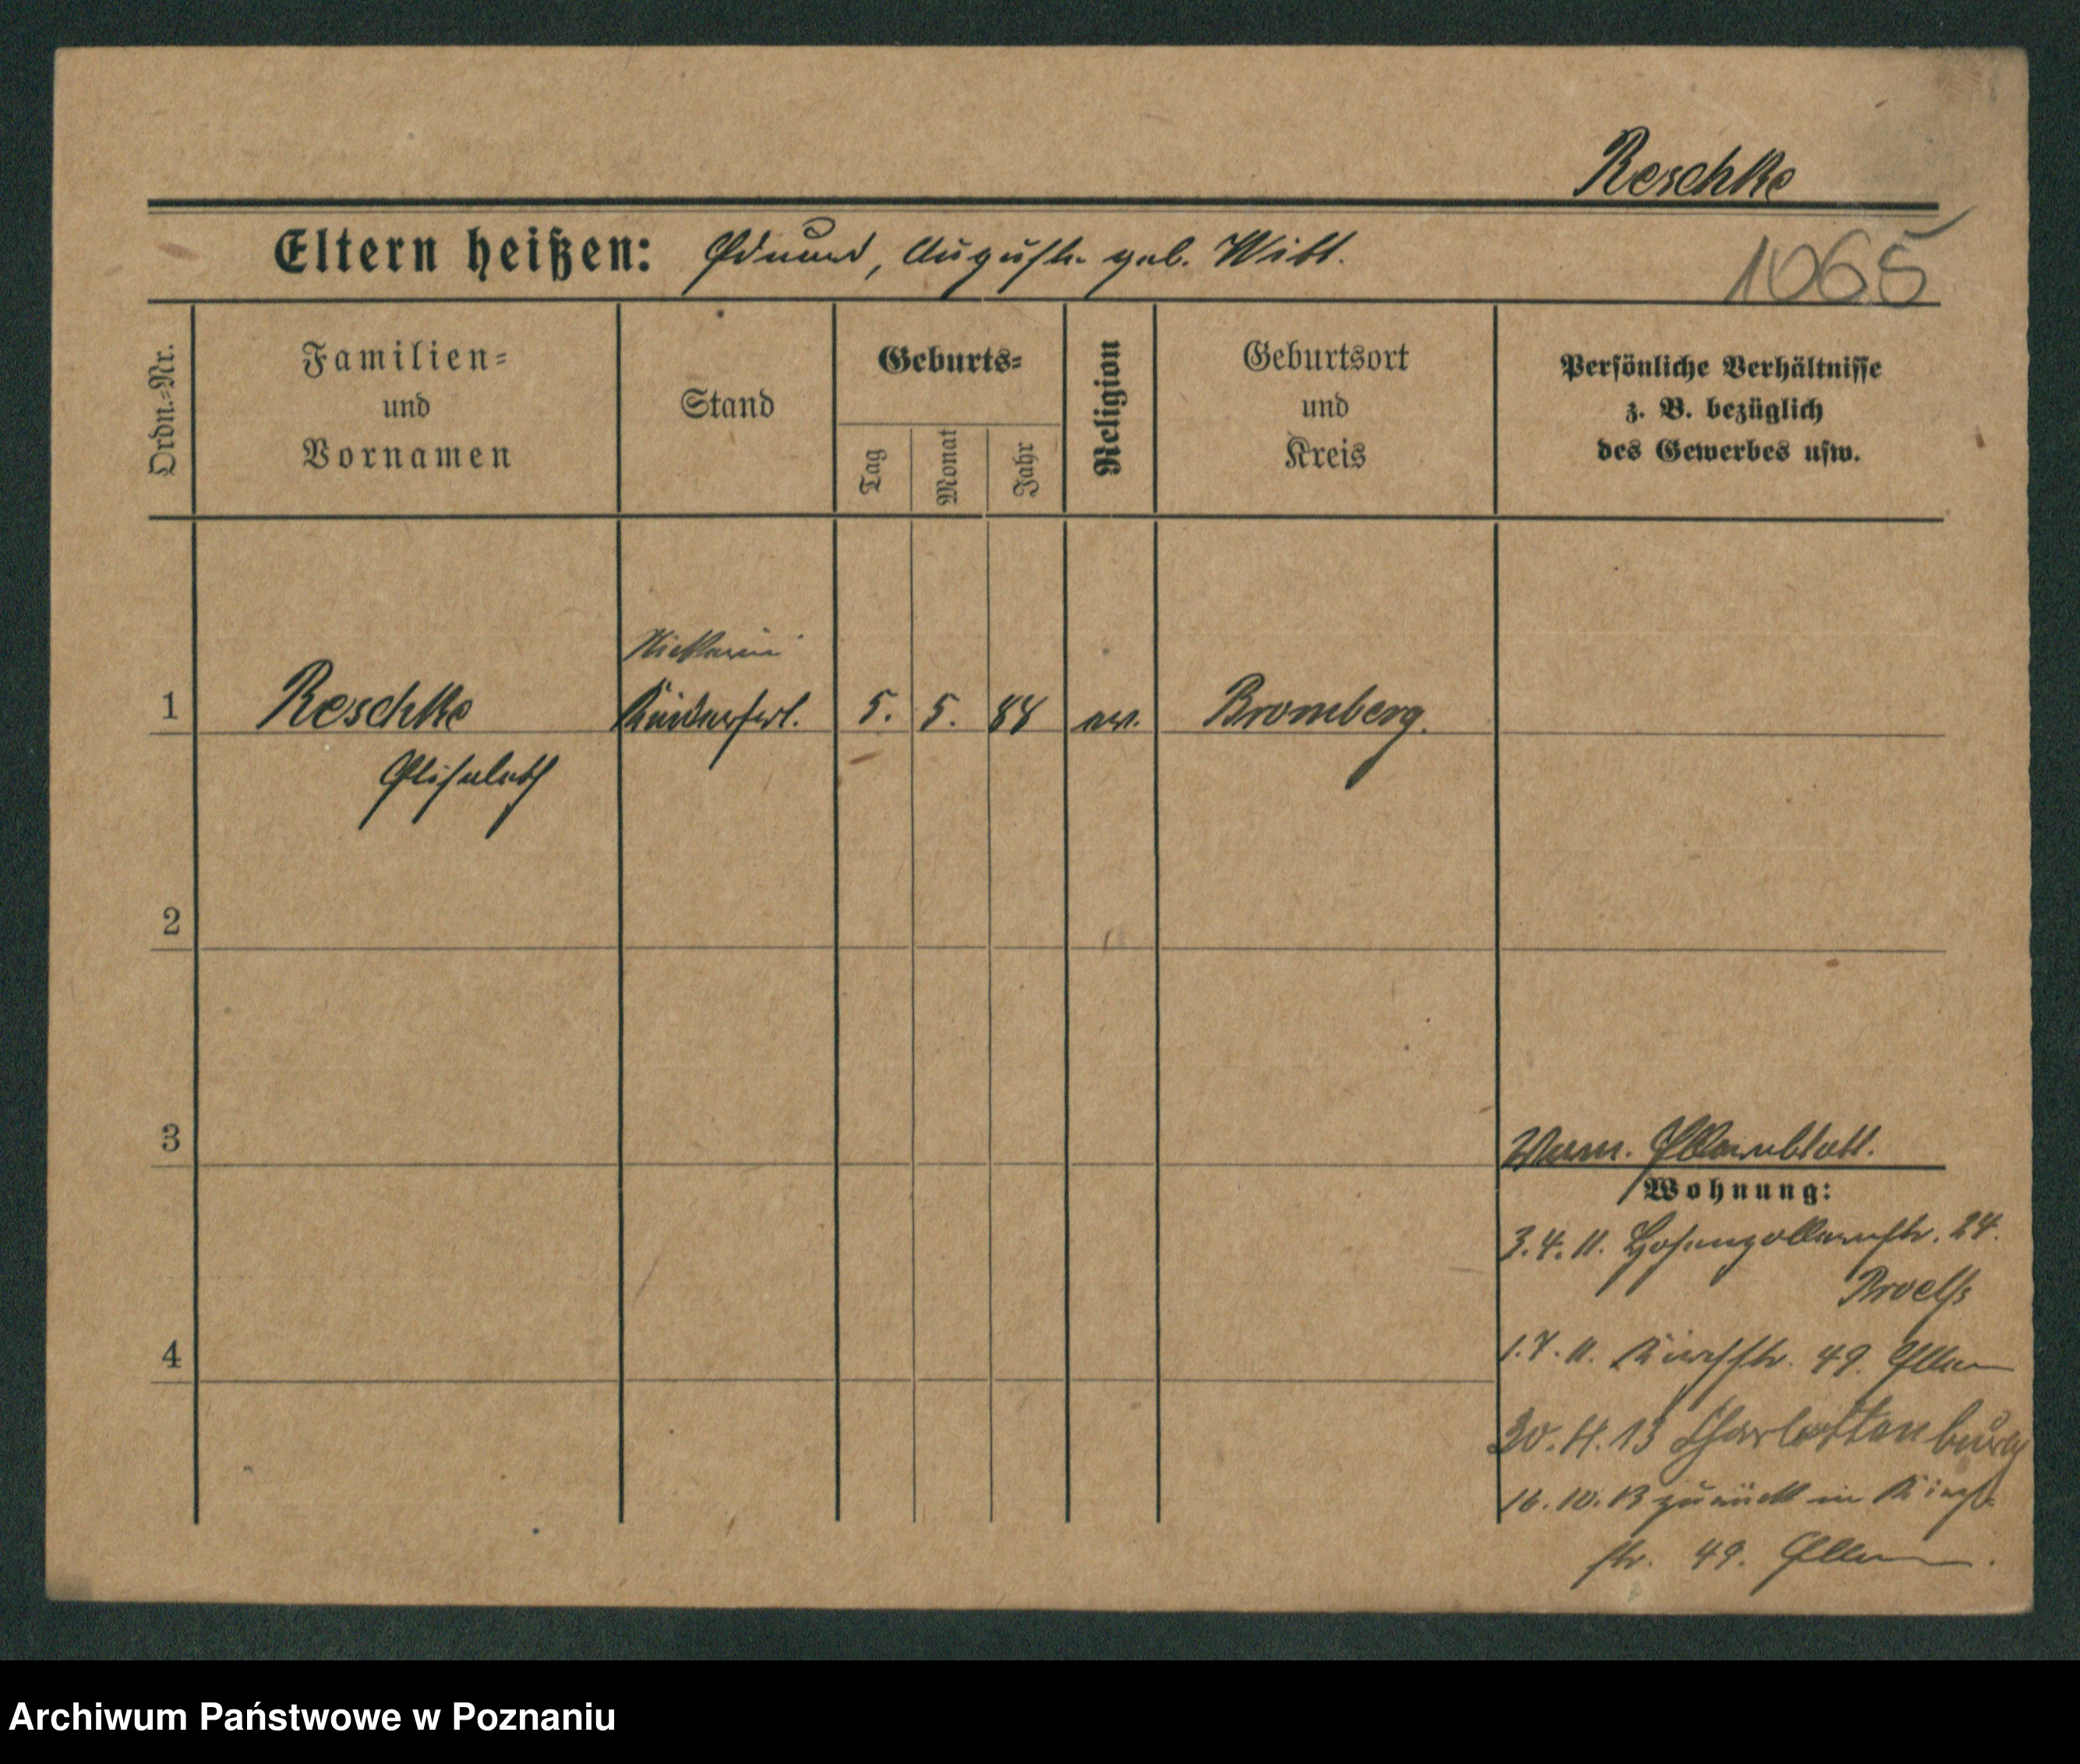 Reschke
Eltern heißen: Eduard, Auguste geb. Witt.
1065
Ordn.-Nr.
Familien-
und
Vornamen
Stand
Geburts-
Tag
Monat
Jahr
Religion
Geburtsort
und
Kreis
Persönliche Verhältnisse
z. B. bezüglich
des Gewerbes usw.
1 Reschke Kinderfrl. 5. 5. 88 ev. Bromberg.
Elisabeth
2
3
Wohnung:
3.4.11. Hohenzollernstr. 24.
4
1.7.11. 49.
30.4.13 Charlottenburg
16.10.13 zurück in
str. 49.
Archiwum Państwowe w Poznaniu